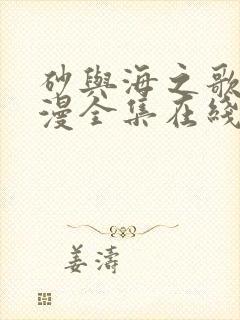 砂與海之歌
漫全集在綫
姜濤